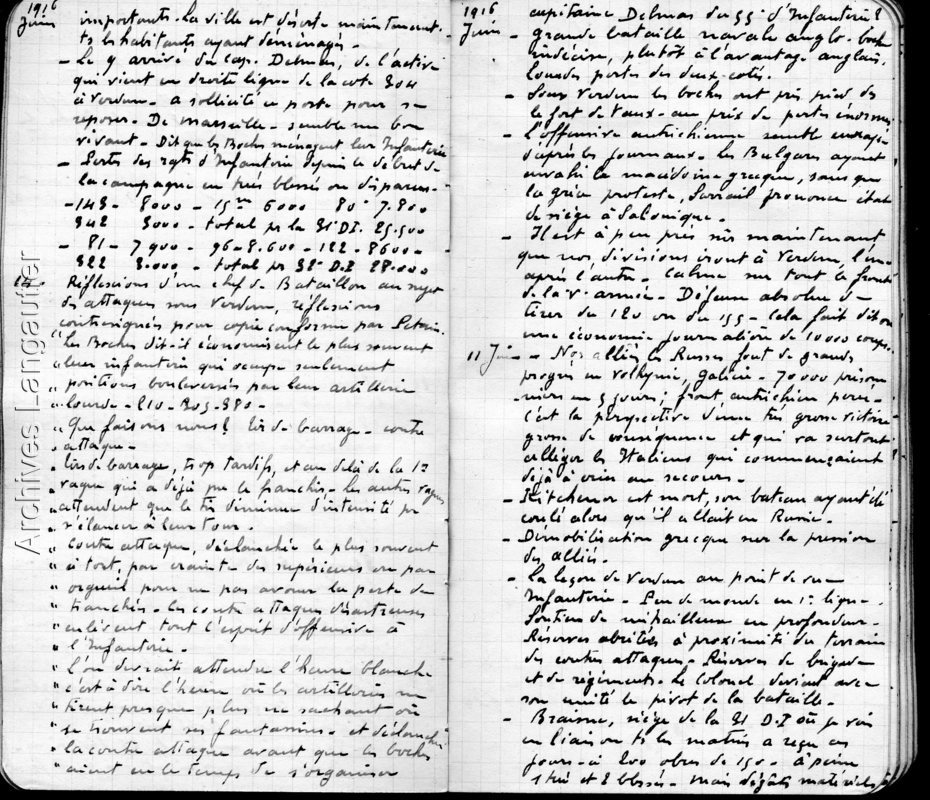 1916
Juin
importants. La ville est déserte maintenant.
ts les habitants ayant déménagés.
- Le 9 arrive du cap. Delmas, de l'active
qui vient en droite ligne de la cote 304
à Verdun - a sollicité ce poste pour se
reposer. De Marseille - semble un bon
vivant - Dit que les Boches ménagent leur Infanterie
- Pertes des rgts d'Infanterie depuis le début de
la campagne en tués blessés ou disparus -
- 143 - 8000 - 15me 6000 80e 7.800
342 3000 - total pr la 31e D.I. 25.500
- 81 - 7900 - 96 - 8.600 - 122 - 8600 -
322 3.000 - total pr 32e D.I 28.000
Réflexions d'un chef de Bataillon au sujet
des attaques sous Verdun, réflexions
contresignées pour copie conforme par Petain.
" Les Boches dit-il économisent le plus souvent
" leur infanterie qui occupe seulement
" positions bouleversées par leur artillerie
" lourde - 210 - 305 - 380 -
" Que faisons nous? tirs de barrage - contre
" attaque -
" tirs de barrage, trop tardifs, et au delà de la 1re
" vague qui a déjà pu le franchir - les autres vagues
" attendent que le tir diminue d'intensité pr
" s'élancer à leur tour.
" Contre attaque, déclanchée le plus souvent
" à tort, par crainte des supérieurs ou par
" orgueil pour ne pas avouer la perte de
" tranchées - les contre attaques désastreuses
" enlèvent tout l'esprit d'offensive à
" l'Infanterie.
" l'on devrait attendre l'heure blanche
" c'est à dire l'heure où les artilleries ne
" tirent presque plus ne sachant où
" se trouvent ses fantassins - et déclancher
" la contre attaque avant que les boches
" aient eu le temps de s'organiser
Archives Langautier
1916
Juin
capitaine Delmas du 55e d'Infanterie?
- grande bataille navale anglo-boche
indécise, plutôt à l'avantage anglais.
Lourdes pertes des deux cotés.
- Sous Verdun les boches ont pris pied ds
le fort de Vaux - au prix de pertes énormes
- L'offensive autrichienne semble enrayée
d'après les journaux - les Bulgares ayant
envahi la macédoine grecque, sans que
la grèce proteste, Sarrail prononce l'état
de siège à Salonique.
- Il est à peu près sûr maintenant
que nos divisions iront à Verdun, l'une
après l'autre. Calme sur tout le front
de la Ve armée. Défense absolue de
tirer du 120 ou du 155 - Cela fait dit-on
une économie journalière de 10000 coups.
11 Juin - Nos alliés les Russes font de grands
progrès en Volhynie, Galicie - 70 000 prison
niers en 5 jours; front autrichien percé
- c'est la perspective d'une très grosse victoire
grosse de conséquence et qui va surtout
alléger les Italiens qui commençaient
déjà à crier au secours.
- Kitchener est mort, son bateau ayant été
coulé alors qu'il allait en Russie.
- Démobilisation grecque sur la pression
des alliés.
- La leçon de Verdun au point de vue
Infanterie - Peu de monde en 1e ligne -
Soutien de mitrailleuse en profondeur -
Réserves abritées à proximité du terrain
des contre attaques - Réserves de brigade
et de régiments - le Colonel devient avec
son unité le pivot de la bataille.
- Braisne, siège de la 31 D.I où je vais
en liaison ts les matins a reçu ces
jours-ci 200 obus de 150 - à peine
1 tué et 2 blessés - mais dégâts matériels